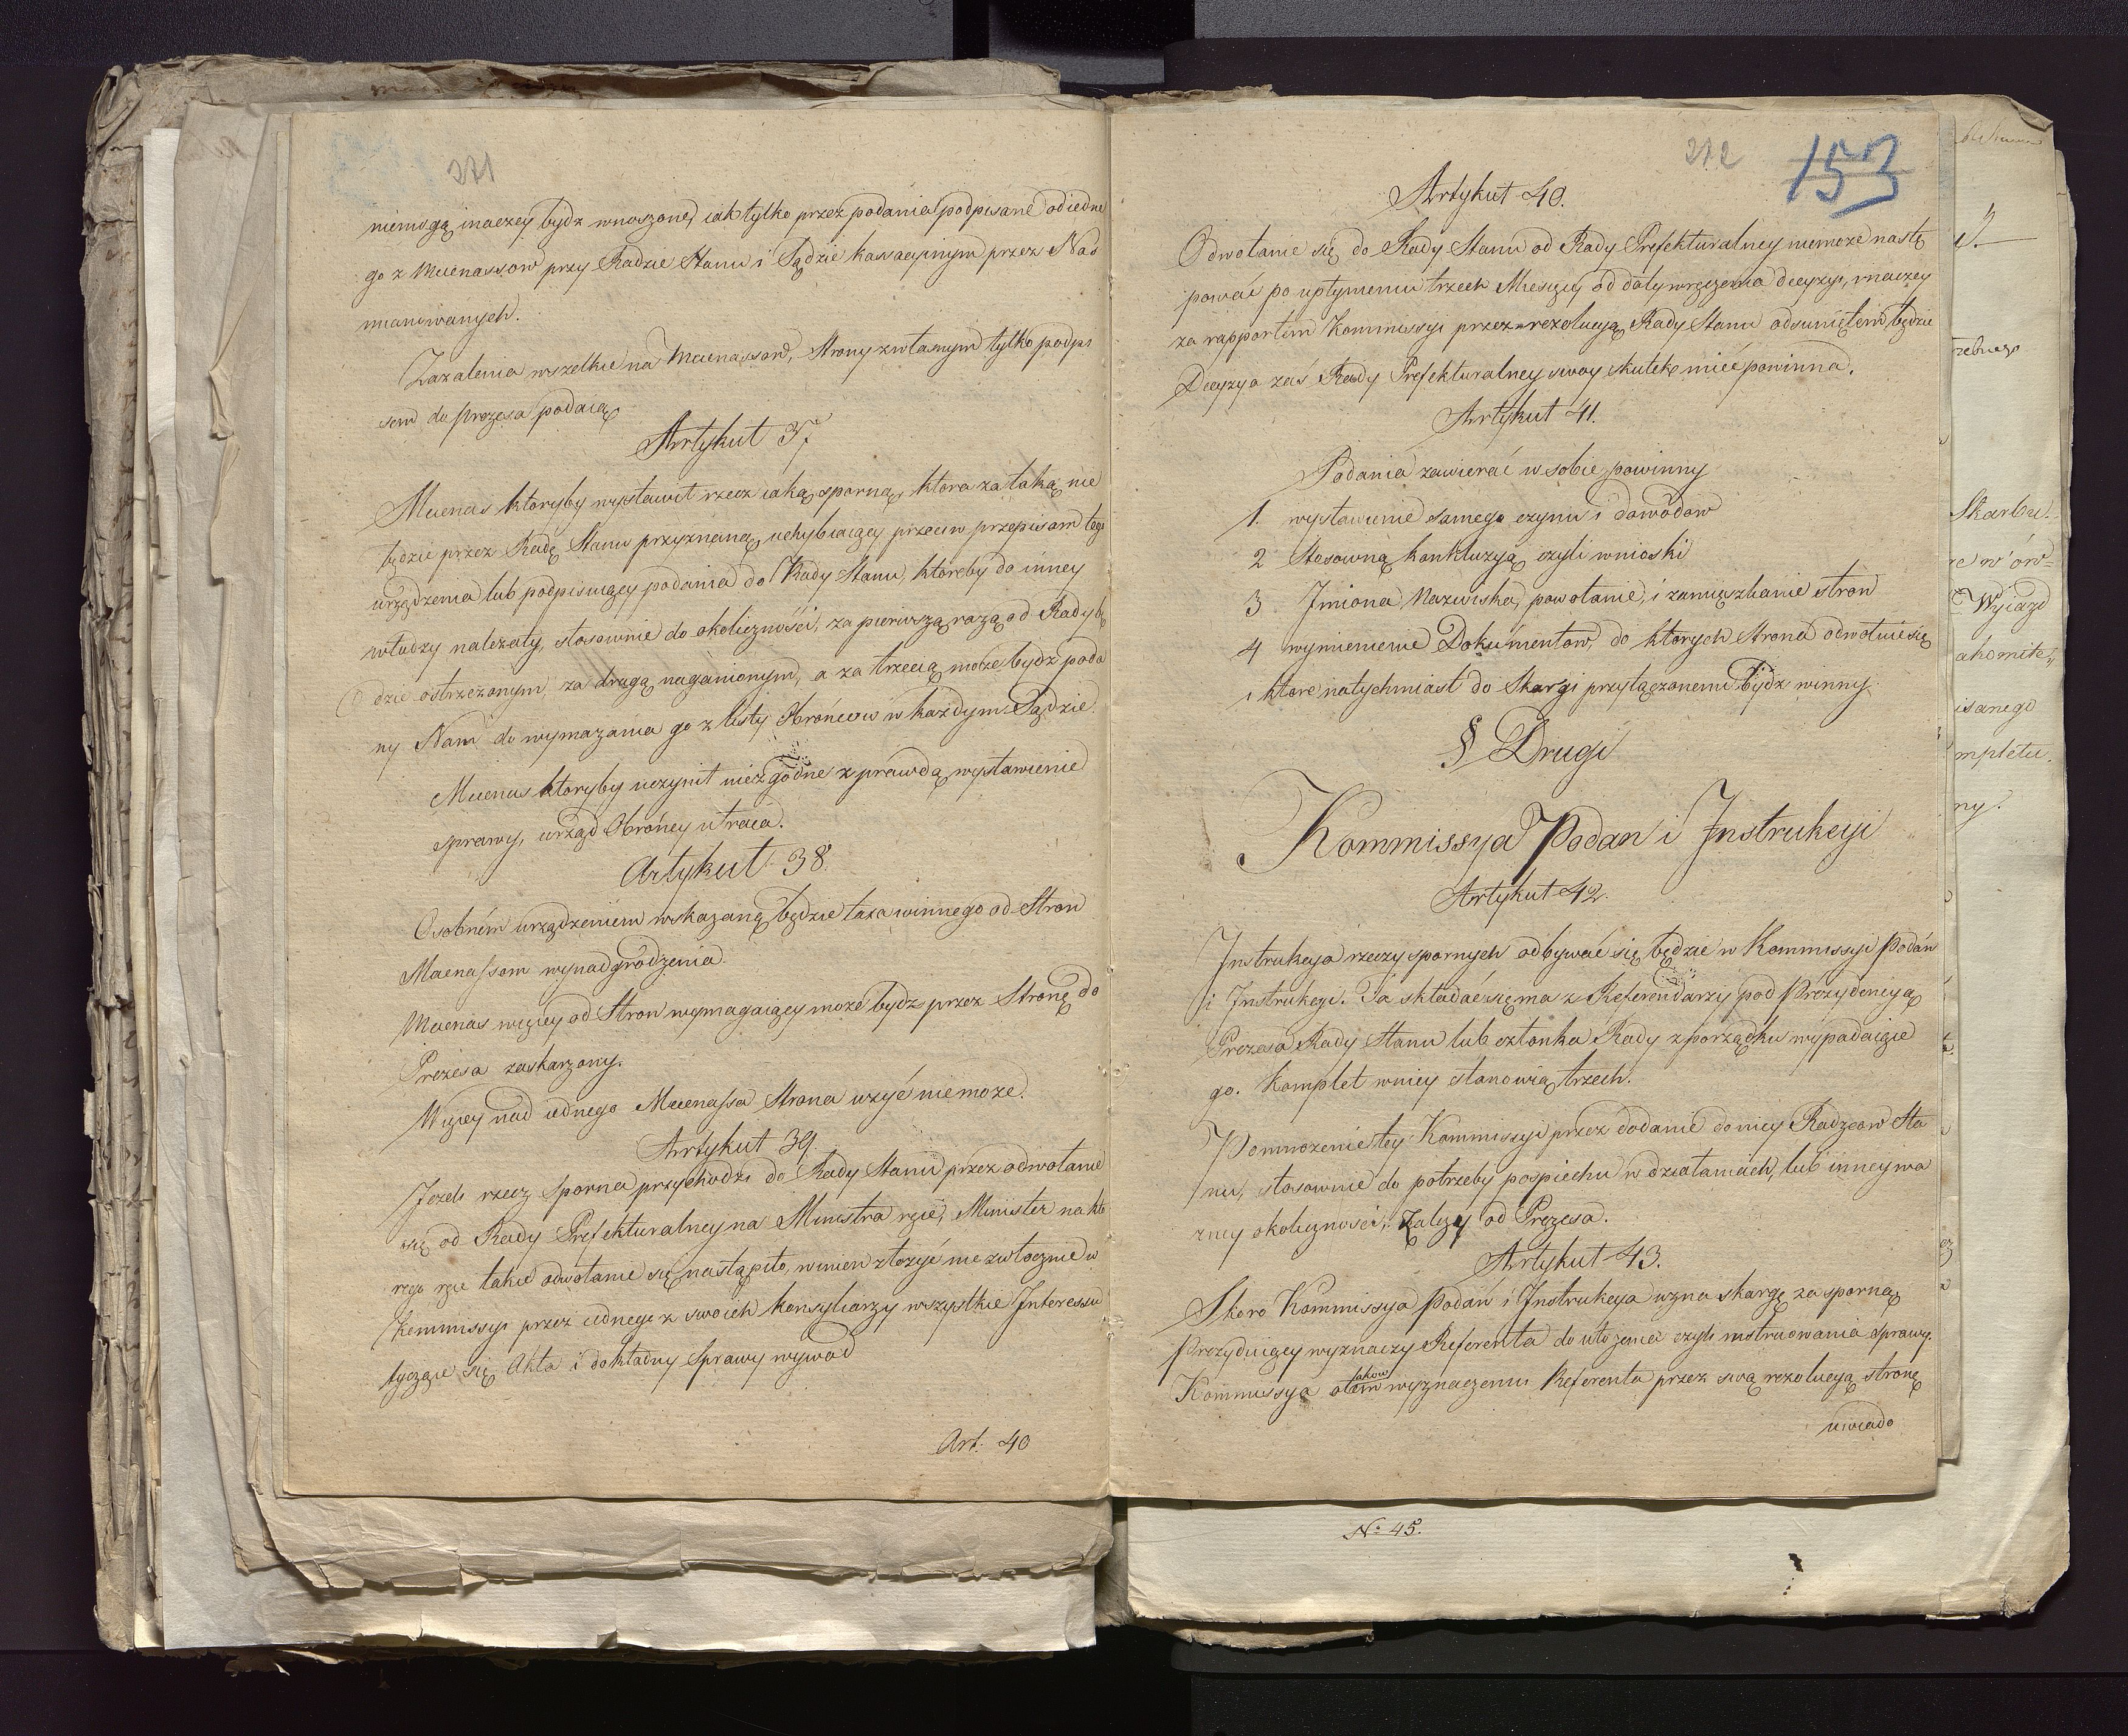 271
niemogą inaczey bydz wnoszone, iak tylko przez podania podpisane od iedne
go z Mecenassow przy Radzie Stanu i Sądzie kassacyinym przez Nas
mianowanych.
Zazalenia wszelkie na Mecenassow, Strony z własnym tylko podpi
sem do Prezesa podaią
Artykuł 37
Mecenas ktoryby wystawił rzecz iaką sporną, ktora za taką nie
będzie przez Radę Stanu przyznaną, uchybiaiący przeciw przepisom tego
urządzenia lub podpisuiący podania do Rady Stanu, któreby do inney
władzy należały, stosownie do okoliczności, za pierwszą razą od Rady bę
dzie ostrzeżonym, za drugą naganionym, a za trzecią może bydz poda
ny Nam do wymazania go z listy Obrońcow w każdym Sądzie.
Mecenas ktoryby uczynił niezgodne z prawdą wystawienie
sprawy, urząd Obrońcy utraca.
Artykuł 38.
Osobném urządzeniem wskazaną będzie taxa winnego od Stron
Mecenassom wynadgrodzenia.
Mecenas więcey od Stron wymagaiący może bydz przez Stronę do
Prezesa zaskarzony.
Więcey nad iednego Mecenassa Strona użyć nie może.
Artykuł 39.
Jeżeli rzecz sporna przychodzi do Rady Stanu przez odwołanie
się od Rady Prefekturalney na Ministra rzcie, Minister na któ
rego rzcie takie odwołanie się nastąpiło, winien złożyć niezwłocznie w
Kommissyi przez iednego z swoich konsyliarzy wszystkie Interessu
tyczące się Akta i dokładny Sprawy wywod
Art. 40
272 153
Artykuł 40.
Odwołanie się do Rady Stanu od Rady Prefekturalney niemoże nastę
pować po upłynieniu trzech Miesięcy od daty wręczenia decyzyi, inaczey
za rapportem Kommissyi przez rezolucyą Rady Stanu odsuniętem będzie
Decyzya zaś Rady Prefekturalney swoy skutek mieć powinna.
Artykuł 41.
Podania zawierać w sobie powinny
1. wystawienie samego czynu i dowodow
2 Stosowną konkluzyą czyli wnioski
3 Jmiona Nazwiska, powołanie, i zamieszkanie stron
4 wymienienie Dokumentow, do ktorych Strona odwołuie się
i ktore natychmiast do Skargi przyłączonemi bydz winny.
§ Drugi
Kommissya Podan i Instrukcyi
Artykuł 42.
Instrukcya rzeczy spornych odbywać się będzie w Kommissyi Podań
i Instrukcyi. Ta składać się ma z Referendarzy pod Prezydencyą
Prezesa Rady Stanu lub członka Rady z porządku wypadaiące
go. Komplet w niey stanowią trzech.
Pomnożenie tey Kommissyi przez dodanie do niey Radzcow Sta
nu, stosownie do potrzeby pospiechu w działaniach, lub inney wa
zney okoliczności, zależy od Prezesa.
Artykuł 43.
Skoro Kommissya Podań i Instrukcya uzna skargę za sporną,
Prezyduiący wyznaczy Referenta do ułożenia czyli instruowania sprawy.
Kommissya o takow wyznaczeniu Referenta przez swą rezolucyą stronę
uwiado
N: 45.
Skarbu.
Wyiazd
isanego
mpletu.
ny.